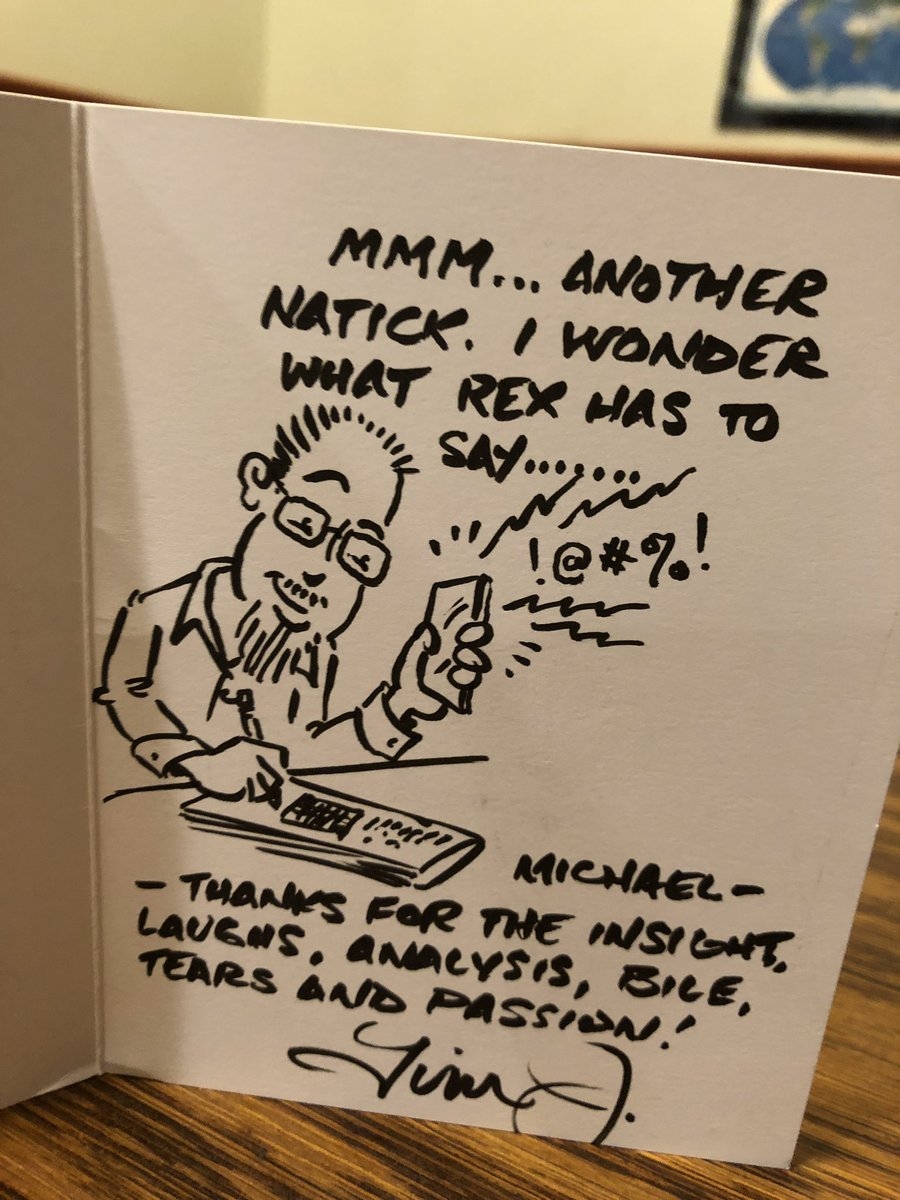 MMM... ANOTHER
NATICK. I WONDER
WHAT REX HAS TO
SAY.......
!@#%!
MICHAEL-
- THANKS FOR THE INSIGHT,
LAUGHS, ANALYSIS, BILE,
TEARS AND PASSION!